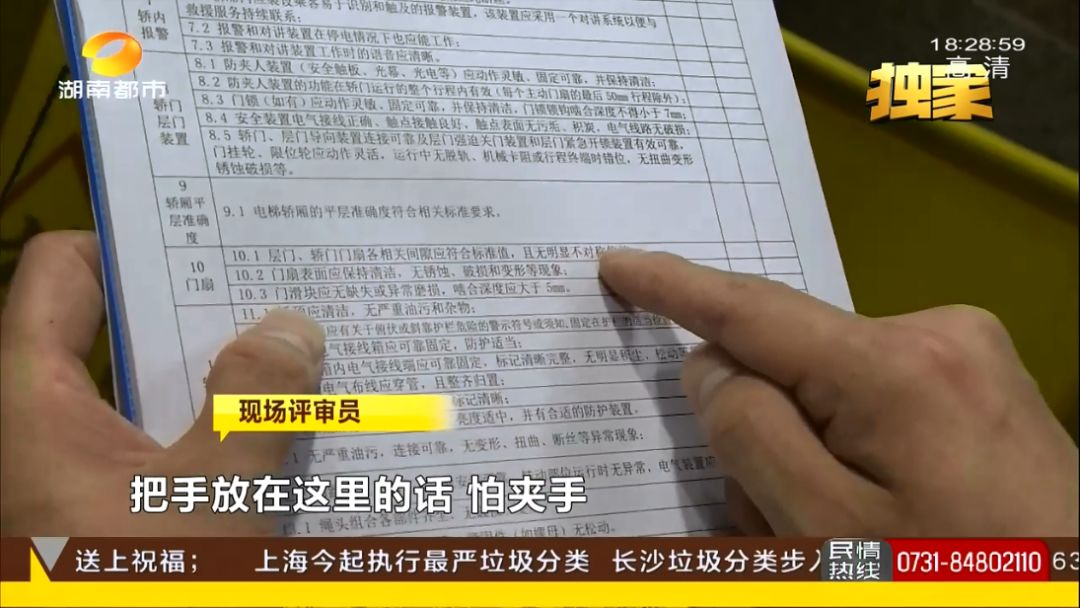 救援服务持续联系；
轿内报警
7.2 报警和对讲装置在停电情况下也应能工作；
7.3 报警和对讲装置工作时的语音应清晰。
轿门层门装置
8.1 防夹人装置（安全触板、光幕、光电等）应动作灵敏、固定可靠，并保持清洁；
8.2 防夹人装置的功能在轿门运行的整个行程内有效（每个主动门扇的最后50mm行程除外）；
8.3 门锁（如有）应动作灵敏、固定可靠，并保持清洁，门锁锁钩啮合深度不得小于7mm；
8.4 安全装置电气接线正确、触点接触良好、触点表面无污垢、积炭，电气线路无破损；
8.5 轿门、层门导向装置连接可靠及层门强迫关门装置和层门紧急开锁装置有效可靠，
门挂轮、限位轮应动作灵活，运行中无脱轨、机械卡阻或行程终端时错位，无扭曲变形
锈蚀破损等。
9
轿厢平层准确度
9.1 电梯轿厢的平层准确度符合相关标准要求。
10
门扇
10.1 层门、轿门门扇各相关间隙应符合标准值，且无明显不对称
10.2 门扇表面应保持清洁，无锈蚀、破损和变形等现象；
10.3 门滑块应无缺失或异常磨损，啮合深度应大于 5mm。
应清洁，无严重油污和杂物；
应有关于俯伏或斜靠护栏危险的警示符号或须知，固定在护
气接线箱应可靠固定，防护适当；
箱内电气接线端应可靠固定，标记清晰完整，无明显积尘，松动
电气布线应穿管，且整齐归置；
标记清晰；
亮度适中，并有合适的防护装置。
.1 无严重油污，连接可靠，无变形、扭曲、断丝等异常现象；
部位运行时无异常，电气装置
.1 绳头组合各部件
无松动。
湖南都市
18:28:59
高清
独家
现场评审员
把手放在这里的话 怕夹手
送上祝福； 上海今起执行最严垃圾分类 长沙垃圾分类步入
民情热线
0731-84802110
63